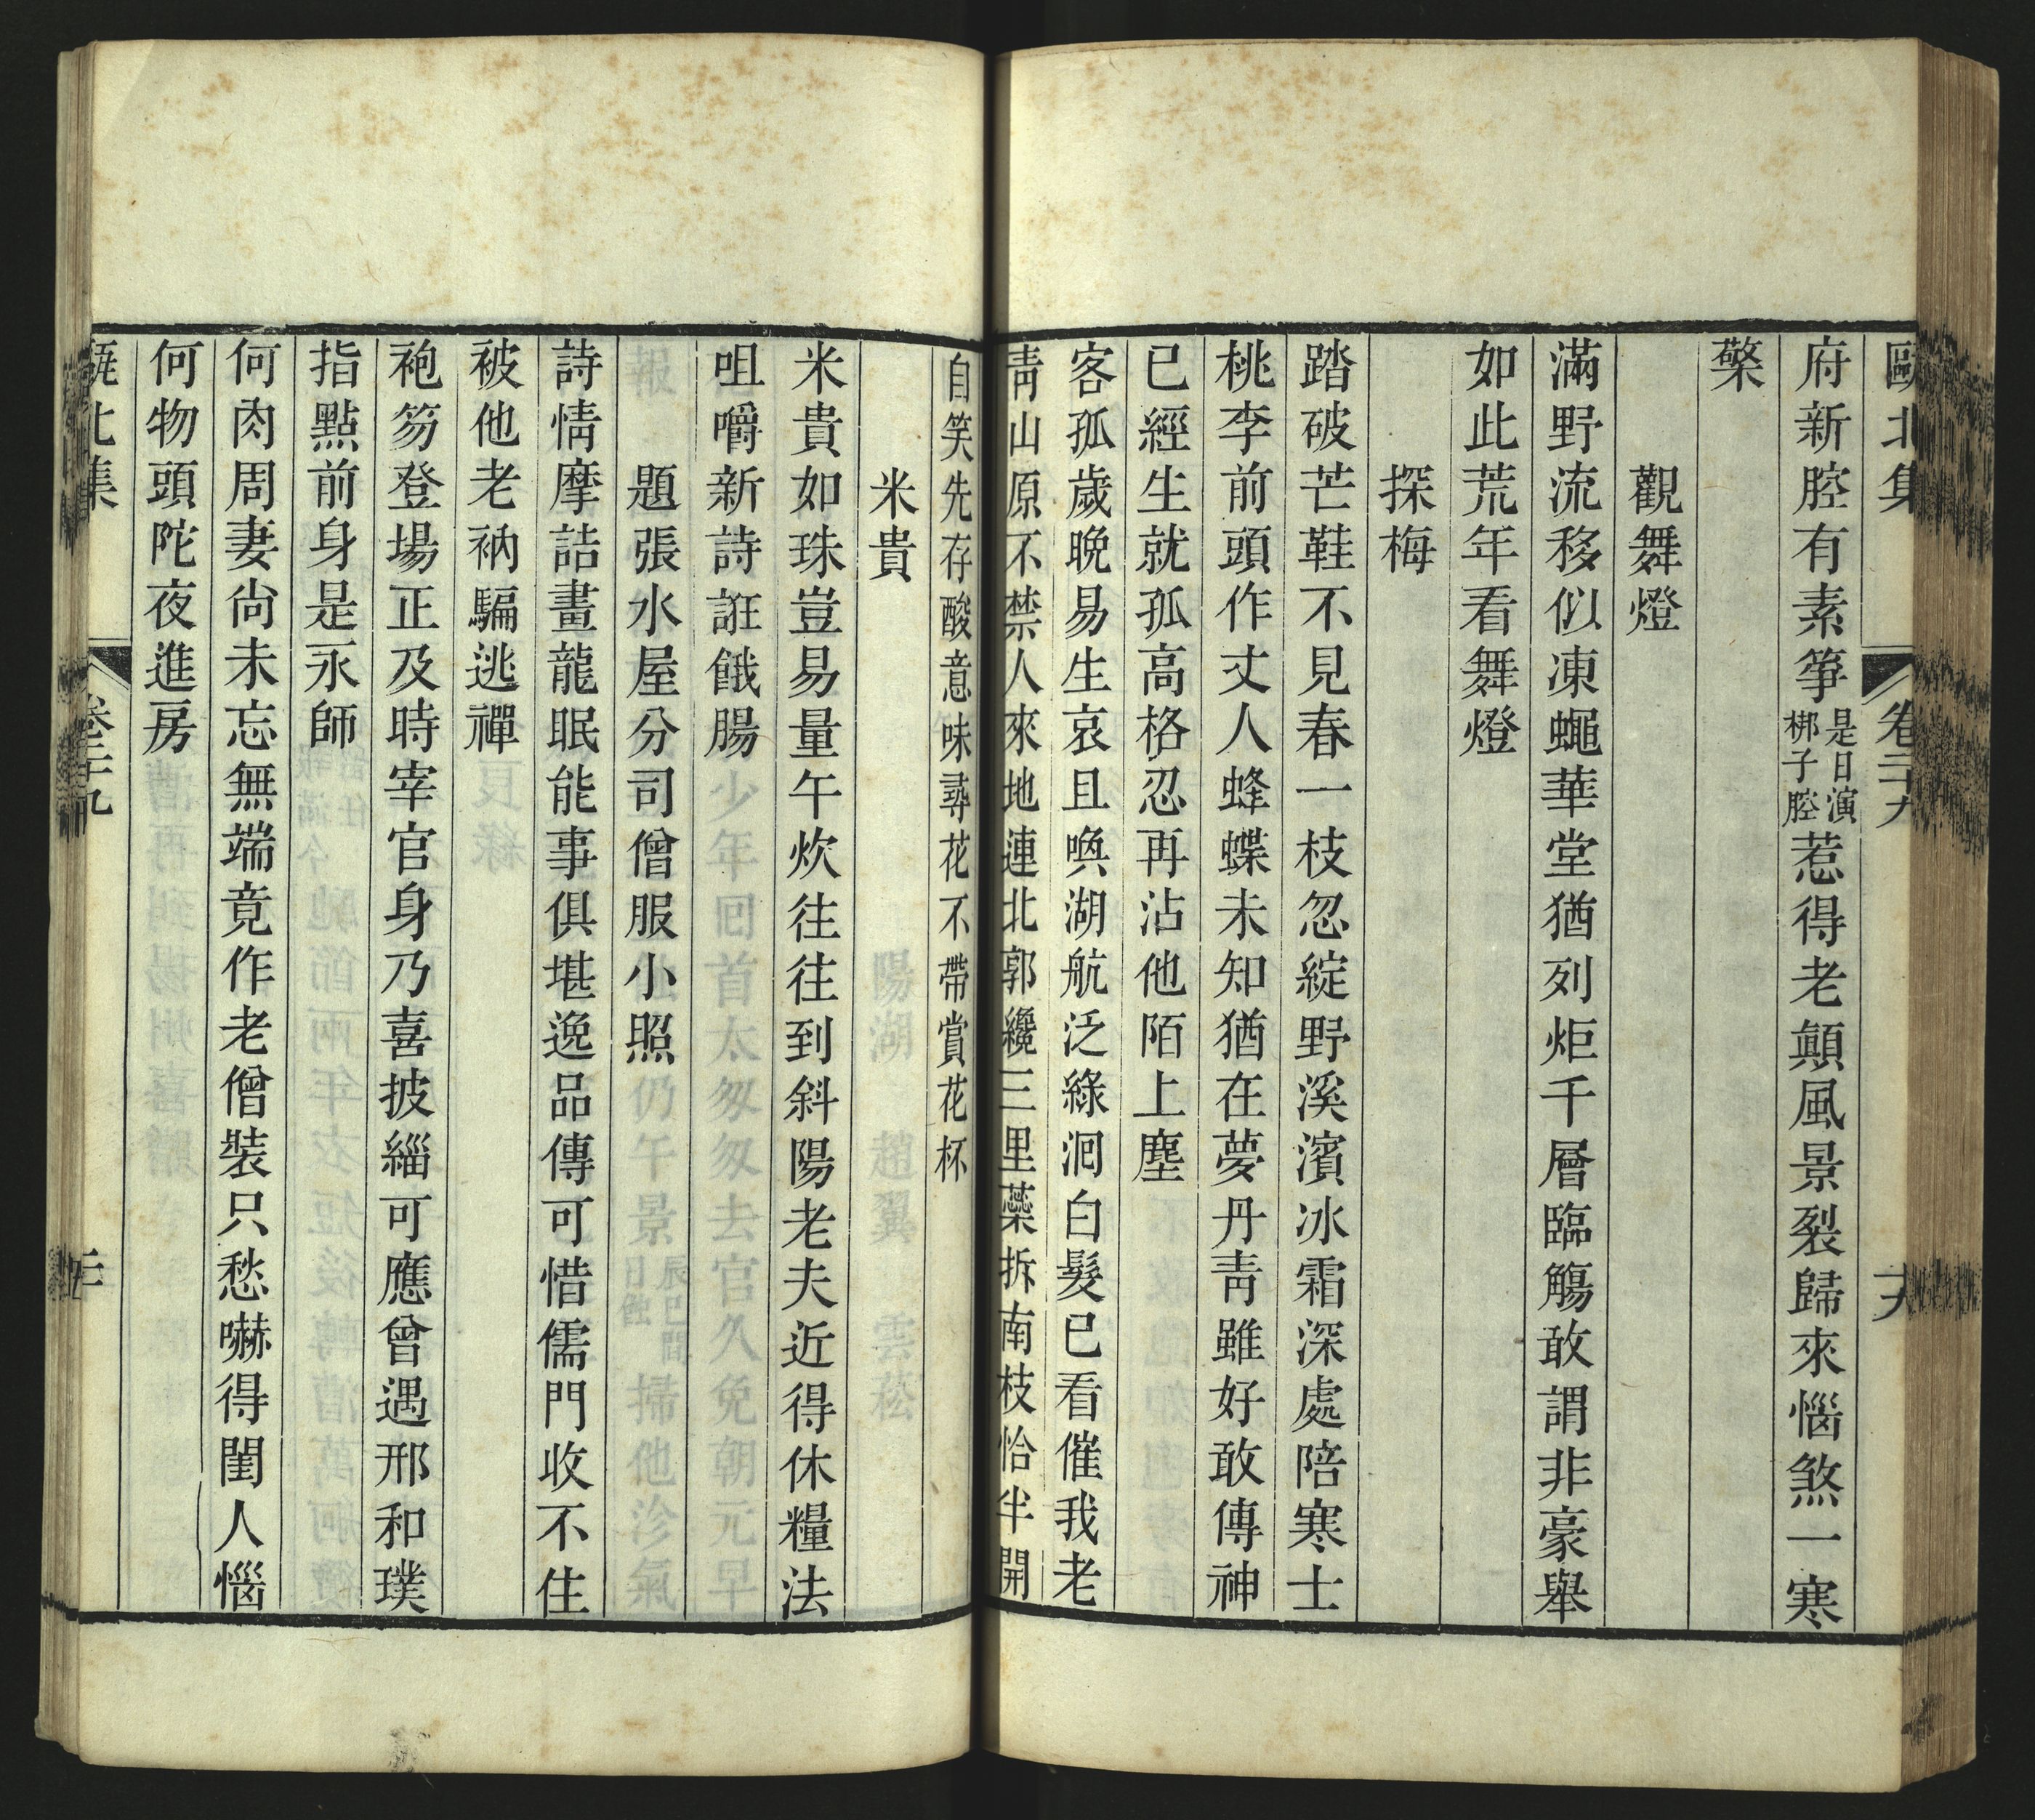 甌北集 卷二十九
府新腔有素箏是日演梆子腔惹得老顛風景裂歸來惱煞一寒
檠
觀舞燈
滿野流移似凍蠅華堂猶列炬千層臨觴敢謂非豪舉
如此荒年看舞燈
探梅
踏破芒鞋不見春一枝忽綻野溪濱冰霜深處陪寒士
桃李前頭作丈人蜂蝶未知猶在夢丹靑雖好敢傳神
已經生就孤高格忍再沾他陌上塵
客孤歲晚易生哀且喚湖航泛綠洄白髮已看催我老
靑山原不禁人來地連北郭纔三里蘂拆南枝恰半開
自笑先存酸意味尋花不帶賞花杯
米貴
米貴如珠豈易量午炊往往到斜陽老夫近得休糧法
咀嚼新詩誑餓腸
題張水屋分司僧服小照
詩情摩詰畫龍眠能事俱堪逸品傳可惜儒門收不住
被他老衲騙逃禪
袍笏登場正及時宰官身乃喜披緇可應曾遇邢和璞
指點前身是永師
何肉周妻尙未忘無端竟作老僧裝只愁嚇得閨人惱
何物頭陀夜進房
甌北集 卷二十九